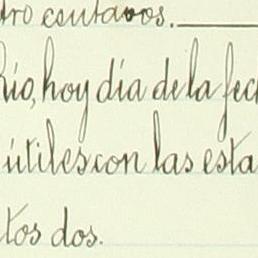 tro centavos.
Río, hoy día de la fec
útiles con las esta
tos dos.